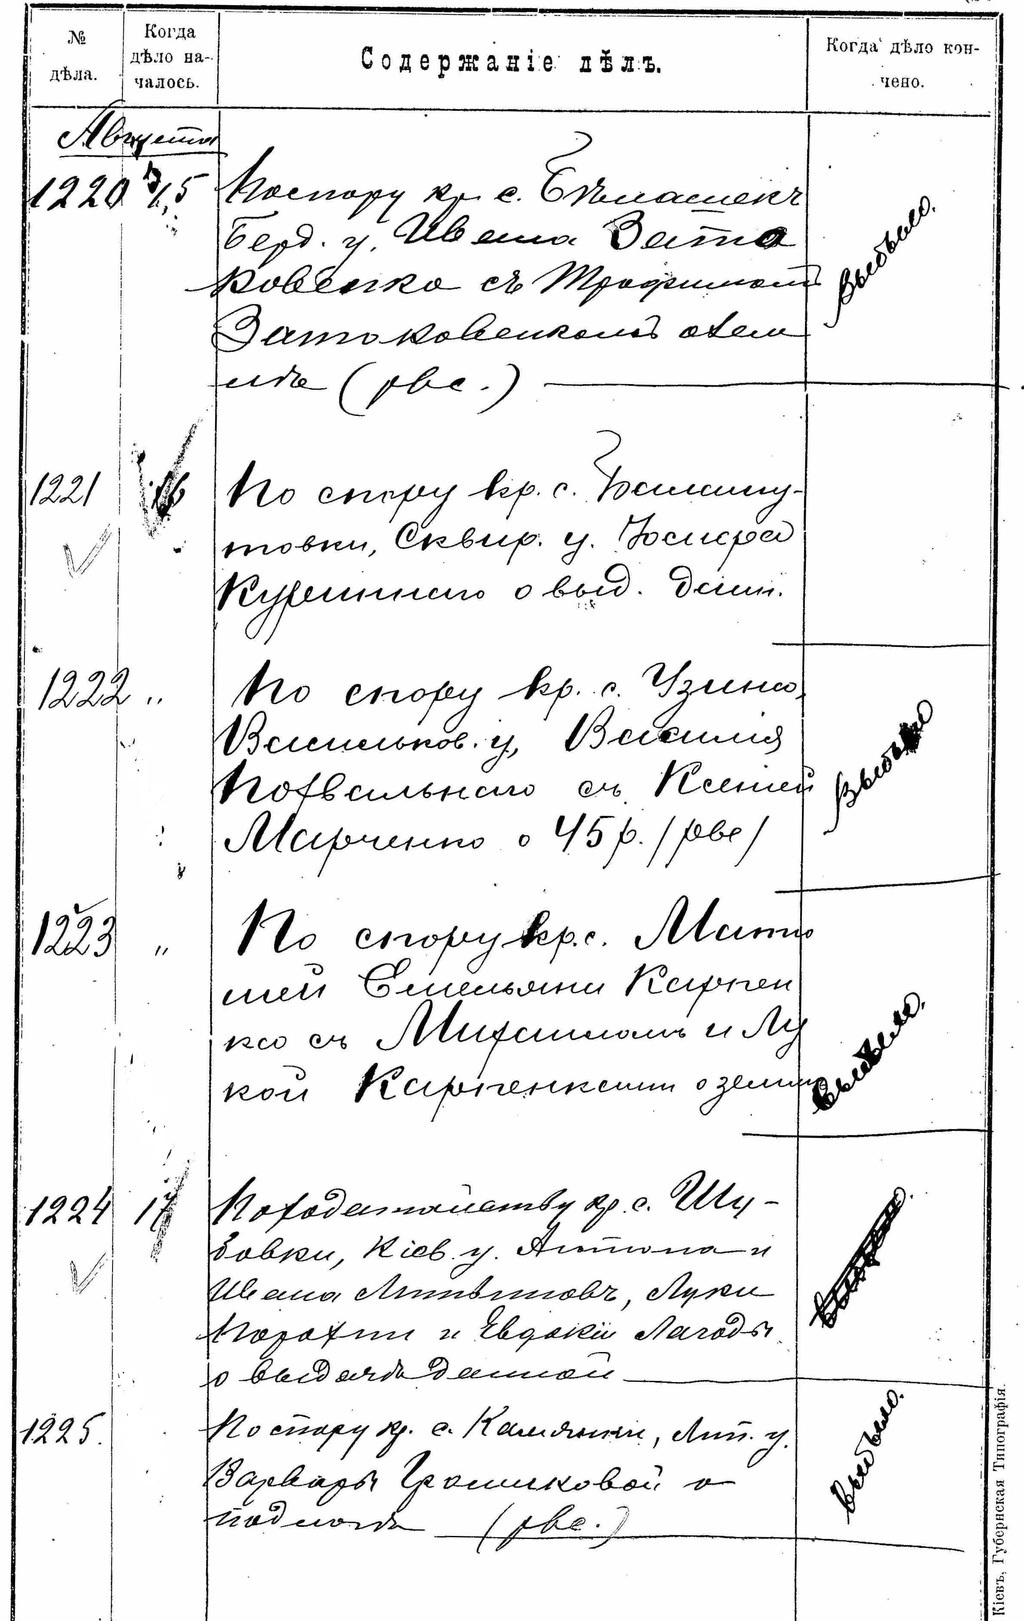 № дѣла.
Когда дѣло на-
чалось.
Содержаніе дѣлъ.
Когда дѣло кон-
чено.
Августа
1220 15 По спору кр. с. Бѣлашекъ
Берд. у. Ивана Зато
ковенко съ Трофимомъ
Затоковенкомъ о зем
лѣ (рвс.)
выбыло.
1221 16 По спору кр. с.
товки, Сквир. у.
о выд. дан.
1222 " По спору кр. с. Узина,
Васильков. у, Василія
Похвальнаго съ Ксеніей
Марченко о 45 р. (рвс)
выбыло
1223 " По спору кр. с. Матю
шей Емельяна Карпен
ко съ Михаиломъ и Лу
кой Карпенками о земли
выбыло.
1224 17 По ходатайству кр. с. Шу-
бовки, Кіев. у. Антона и
Ивана Литвиновъ, Луки
и Евдокіи Лагоды
о выдачѣ данной
выбыло.
1225. По спору кр. с. Камянки, Лип. у.
Варвары Грошиковой о
подлогѣ (рвс.)
выбыло.
Кіевъ, Губернская Типографія.